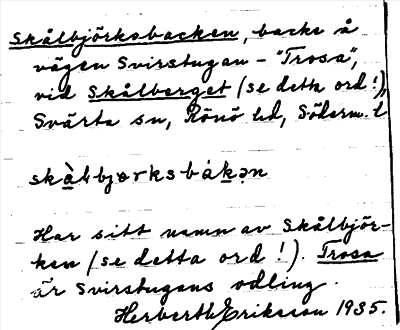 Skålbjörksbacken, backe å
vägen Svirstugan – "Trosa",
vid Skålberget (se detta ord!),
Svärta sn, Rönö hd, Söderm. l
skàlbjœrksbákən
Har sitt namn av Skålbjör-
ken (se detta ord!). Trosa
är Svirstugans odling.
Herbert Erikson 1935.